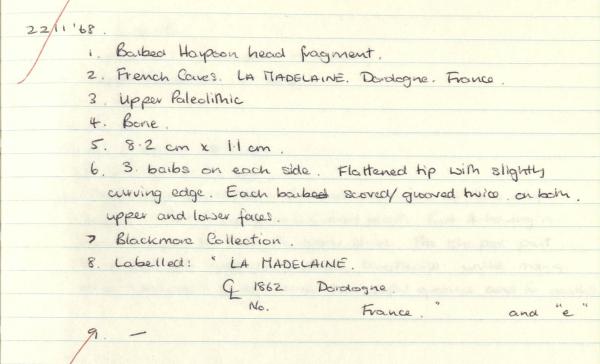 22/1 '68.
1. Barbed Harpoon head fragment.
2. French Caves. LA MADELAINE. Dordogne. France.
3. Upper Paleolithic
4. Bone.
5. 8.2 cm x 1.1 cm.
6. 3 barbs on each side. Flattened tip with slightly
curving edge. Each barbed scored/grooved twice on both
upper and lower faces.
7 Blackmore Collection.
8. Labelled: " LA MADELAINE.
1862 Dordogne.
No. France. " and "e"
9. —